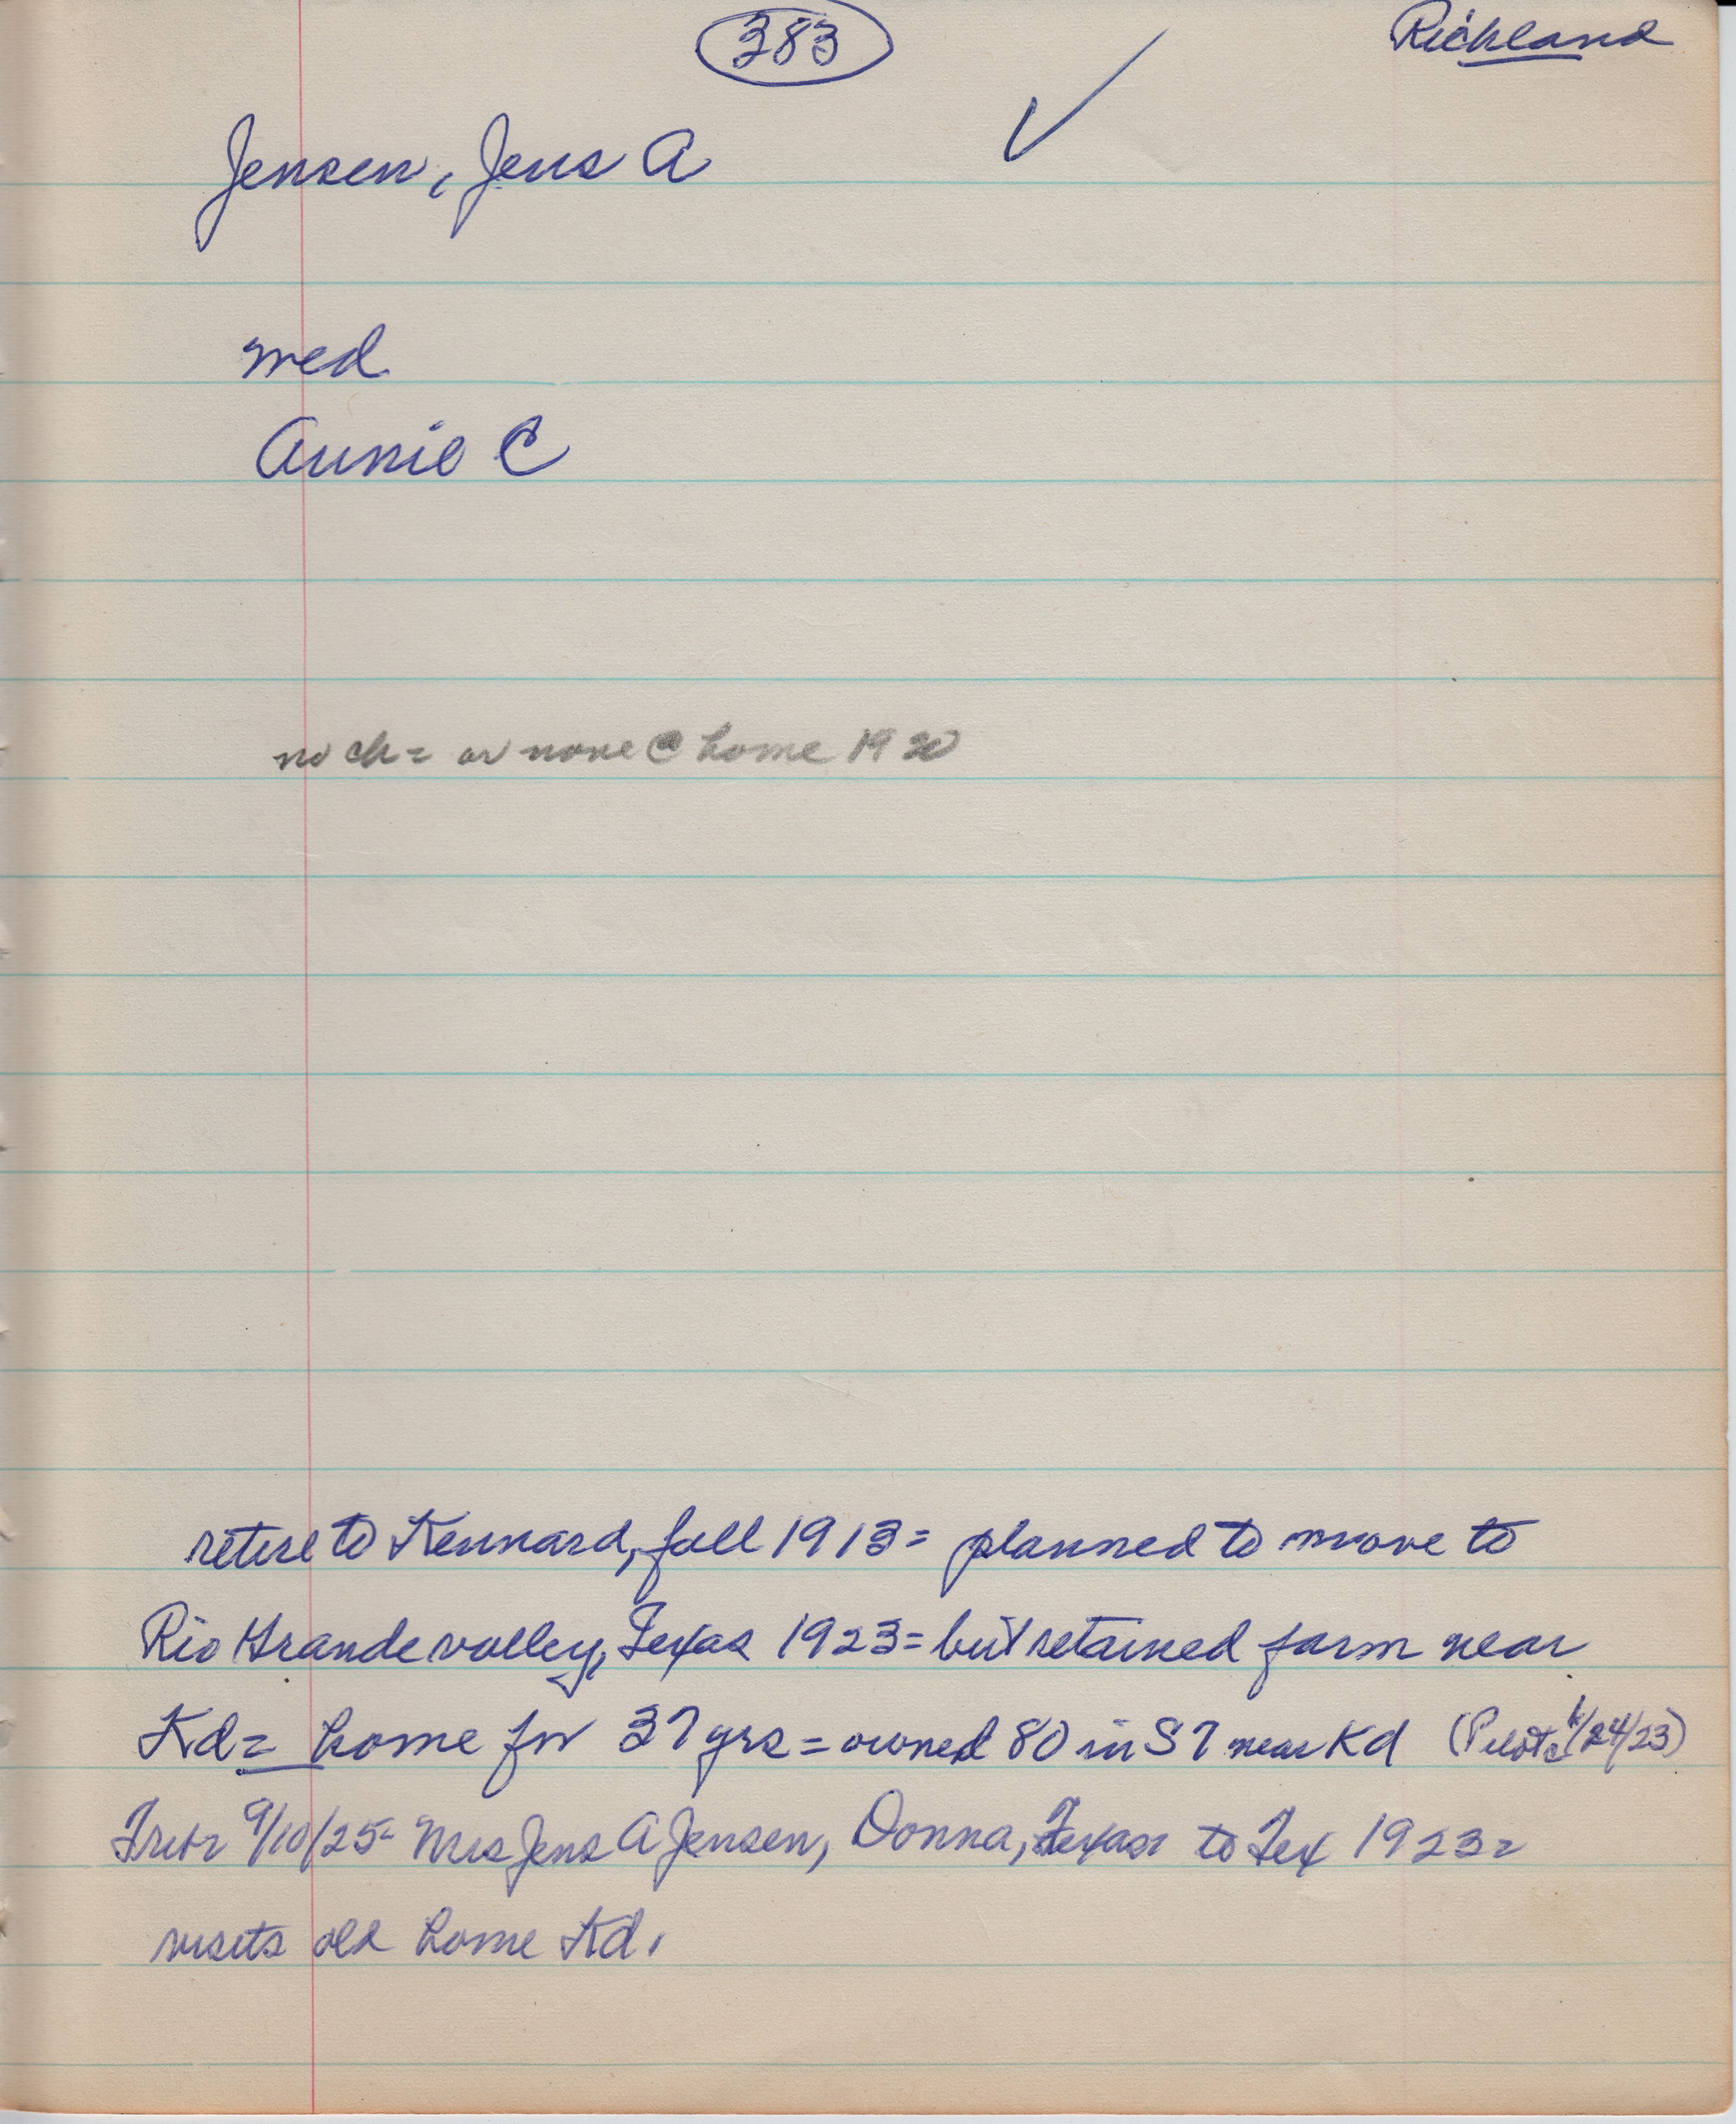 383
Richland
Jensen, Jens A
wed
Annie C
no ch = or none @ home 1920
retire to Kennard, fall 1913 = planned to move to
Rio Grande valley, Texas 1923 = but retained farm near
Kd = home for 37 yrs = owned 80 in S 7 near Kd (Pilot /24/23)
9/10/25 - Mrs Jens A Jensen, Donna, Texas to Tex 1923 =
visits old home Kd.